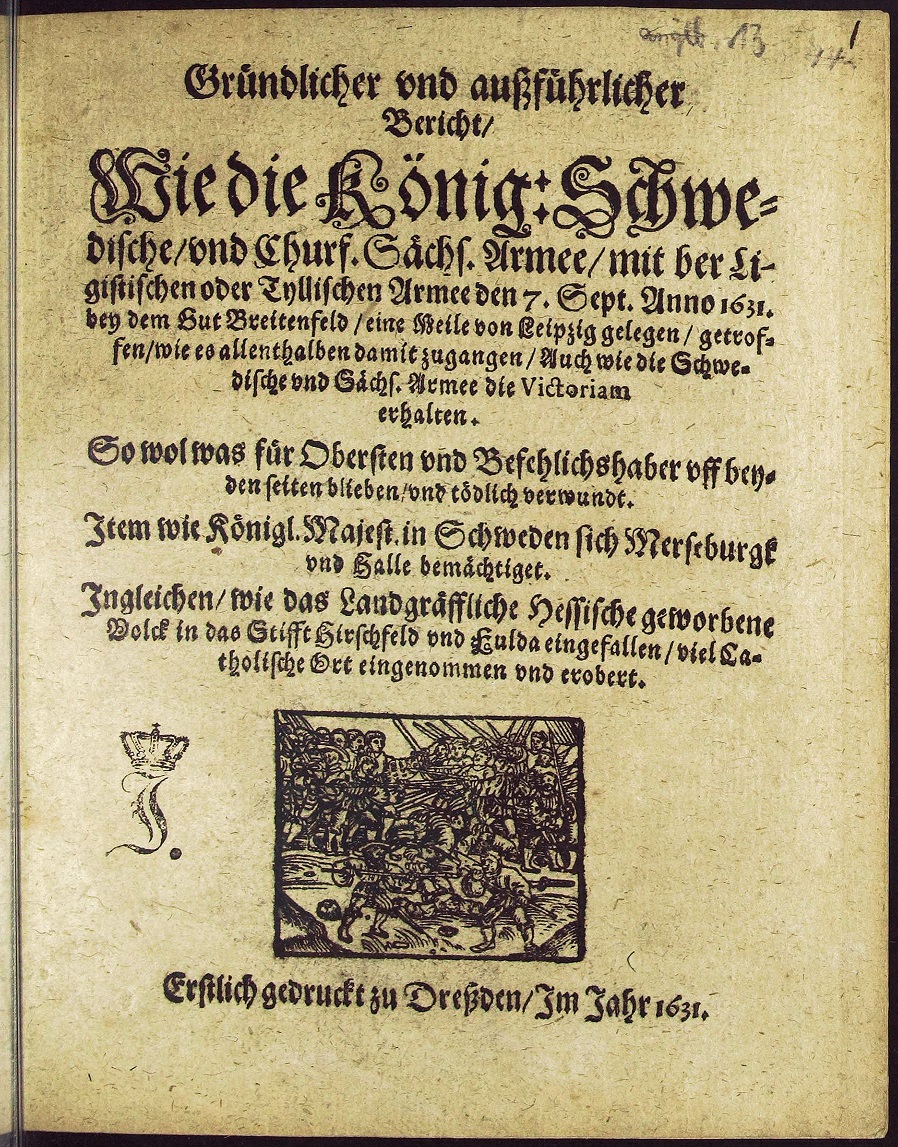 13
1
44
Gründlicher vnd außführlicher
Bericht/
Wie die König: Schwe-
dische/vnd Churf. Sächs. Armee/mit der Li-
gistischen oder Tyllischen Armee den 7. Sept. Anno 1631.
bey dem Gut Breitenfeld/eine Meile von Leipzig gelegen/getrof-
fen/wie es allenthalben damit zugangen/Auch wie die Schwe-
dische vnd Sächs. Armee die Victoriam
erhalten.
So wol was für Obersten vnd Befehlichshaber vff bey-
den seiten blieben/vnd tödlich verwundt.
Item wie Königl. Majest. in Schweden sich Merseburgk
vnd Halle bemächtiget.
Ingleichen/wie das Landgräffliche Hessische geworbene
Volck in das Stifft Hirschfeld vnd Fulda eingefallen/viel Ca-
tholische Ort eingenommen vnd erobert.
I.
Erstlich gedruckt zu Dreßden/Im Jahr 1631.